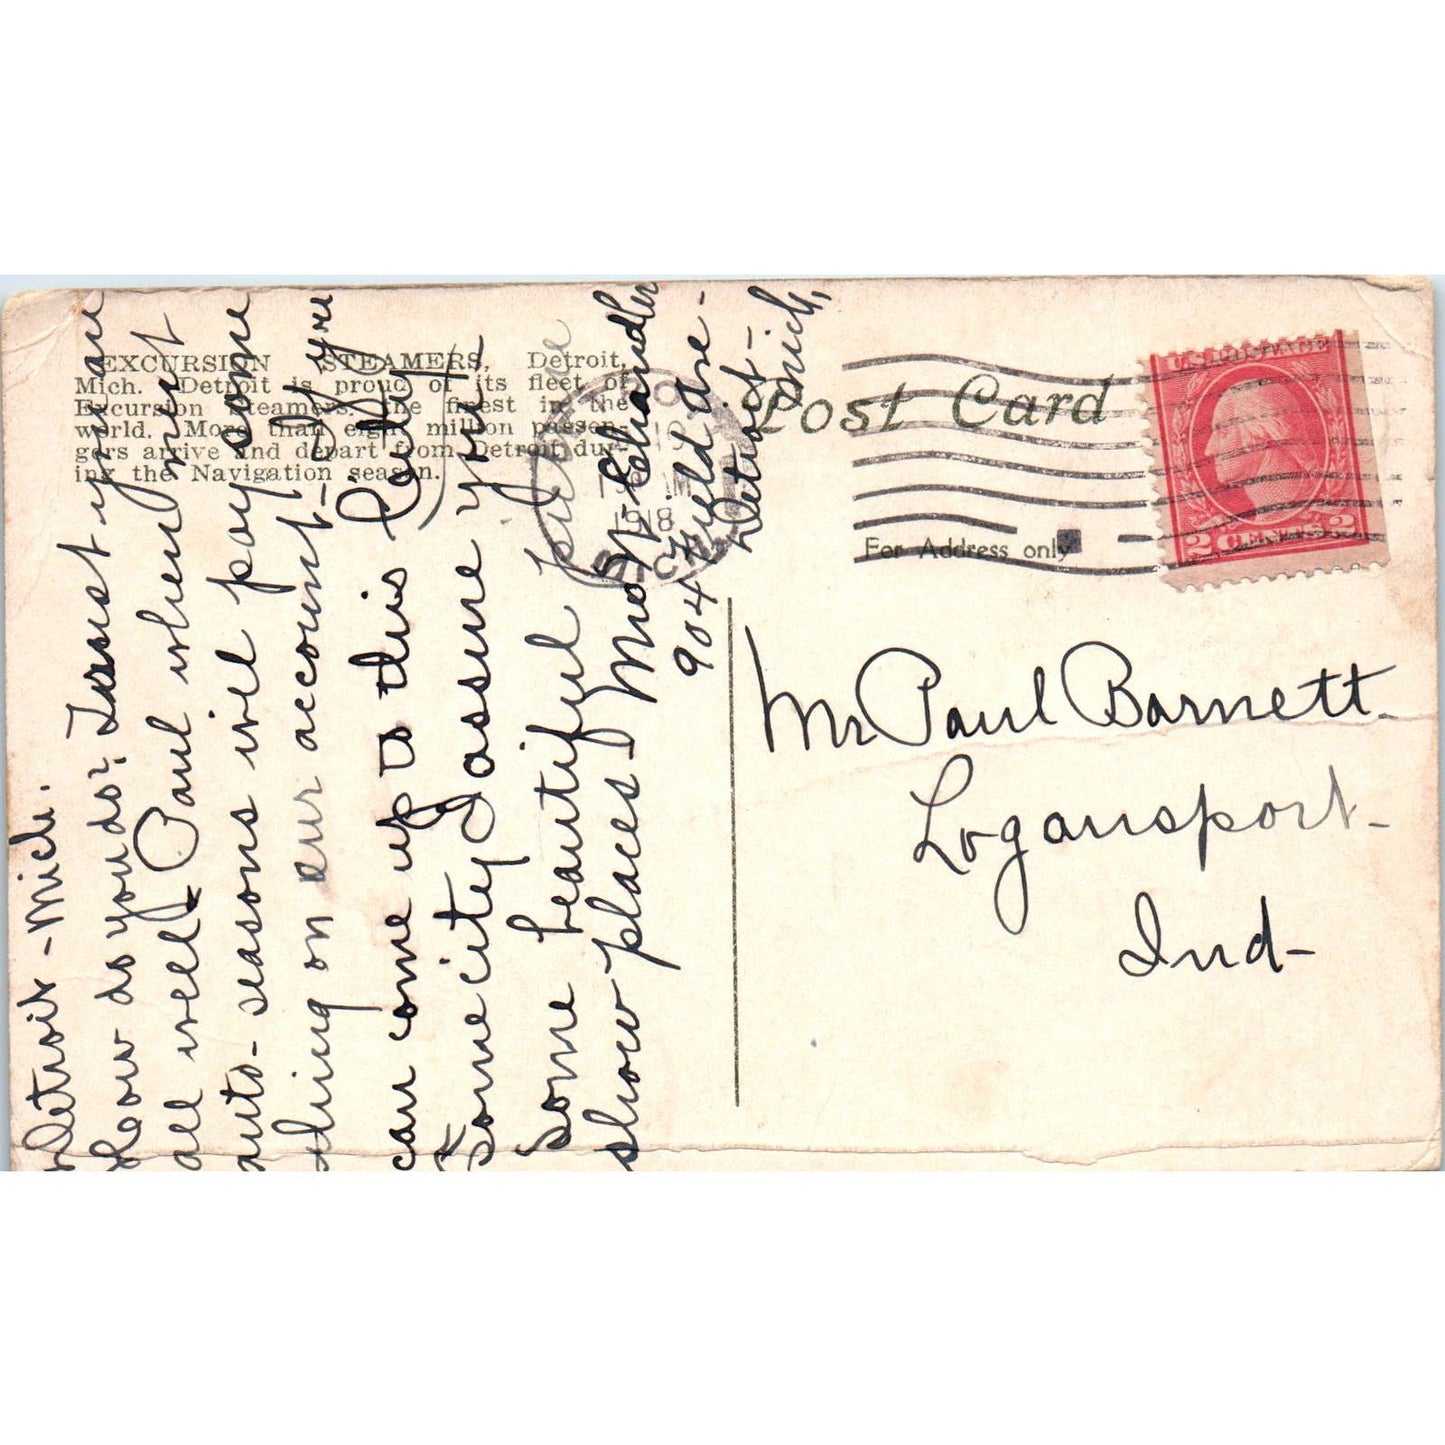 EXCURSION STEAMERS, Detroit,
Mich. Detroit is proud of its fleet of
Excursion Steamers. The finest in the
world. More than eight million passen-
gers arrive and depart from Detroit dur-
ing the Navigation season.
Post Card
For Address only
U.S. POSTAGE
2 CENTS 2
1918
MICH
Detroit - Mich.
How do you do? Trust you are
all well - Paul when
auto - seasons will pay some
on our account -
can come up to this City
Some city I assure you -
Some beautiful
show places - M Chandler
904 Field Ave -
Detroit -
Mich,
Mr Paul Barnett -
Logansport -
Ind -